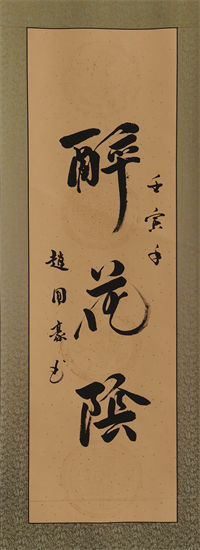 壬寅年
醉花陰
趙國豪书